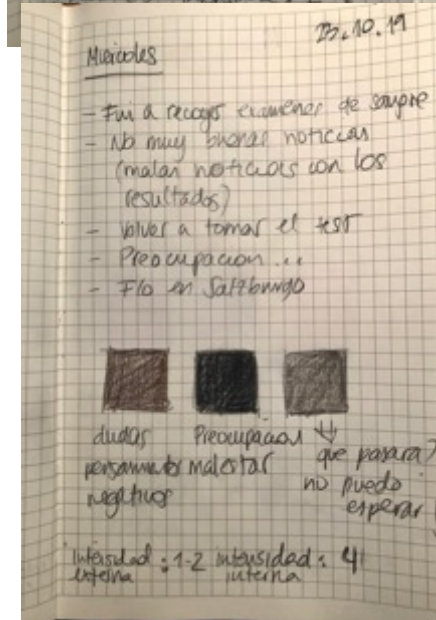 23.10.19
Miércoles
- Fui a recoger examenes de sangre
- No muy buenas noticias
(malas noticias con los
resultados)
- volver a tomar el test
- Preocupacion ...
- Flo en Saltzburgo
dudas
pensamientos
negativos
Preocupacion
malestar
que pasara?
no puedo
esperar!
intensidad externa : 1-2 intensidad interna : 4